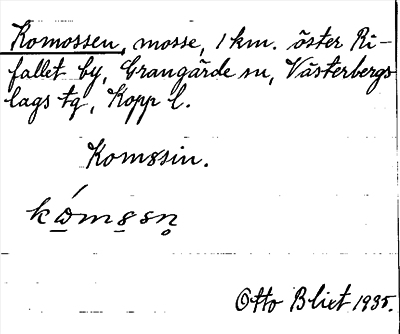 Komossen, mosse, 1 km. öster Ri-
fallet by, Grangärde sn, Västerbergs
lags tg, Kopp l.
Komssin.
Otto Blixt 1935.